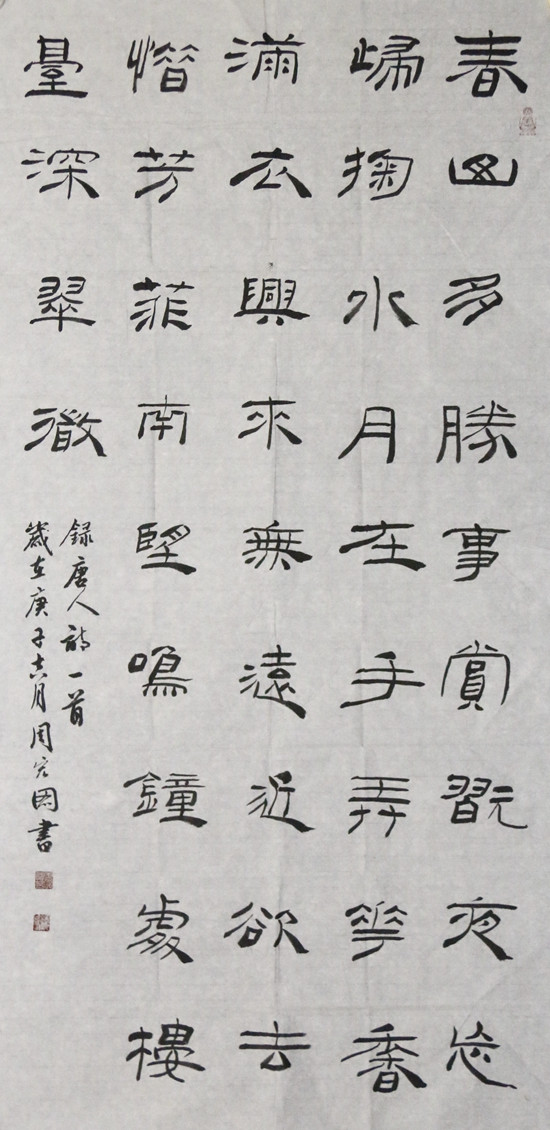 春山多勝事賞翫夜忘
歸掬水月在手弄華香
滿衣興來無遠近欲去
惜芳菲南望鳴鐘處樓
臺深翠微
録唐人詩一首
歲在庚子月周國書